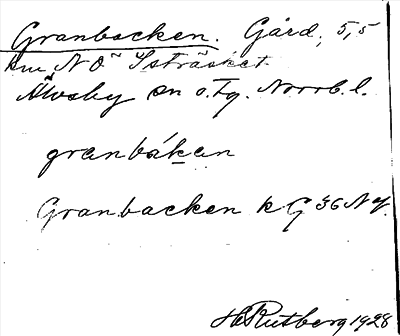 Granbacken. Gård, 5,5
km NO Isträsket
Älvsby sn o. tg. Norrb. l.
granbákan
Granbacken k G 36 NY.
H Rutberg 1928